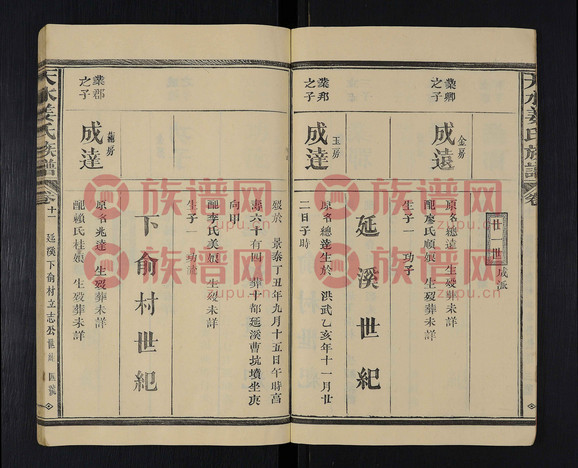 天水姜氏族譜
廿一世
成派
業卿之子
金房
成遠
原名總達 生歿葬未詳
配廖氏順娘 生歿葬未詳
生子一 功子
延溪世紀
業邦之子
玉房
成達
原名總達生於 洪武乙亥年十一月廿
二日子時
歿於 景泰丁丑年九月十五日午時富
壽六十有四 葬十都延溪曹坑墳坐庚
向甲
配李氏美娘 生歿葬未詳
生子一
下俞村世紀
業郡之子
成達
原名兆達 生歿葬未詳
配賴氏桂娘 生歿葬未詳
天水姜氏族譜
卷十一
延溪下俞村立志公
族谱网
zupu.cn
族谱网
zupu.cn
族谱网
zupu.cn
族谱网
zupu.cn
族谱网
zupu.cn
族谱网
zupu.cn